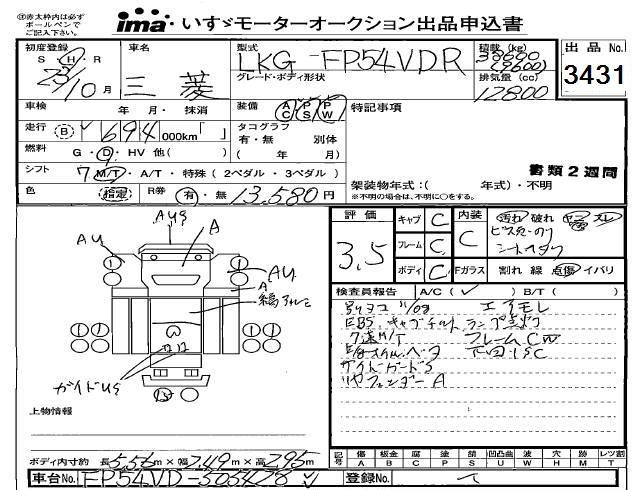 ㊟赤太枠内は必ず
ボールペンで
ご記入下さい。
ima いすゞモーターオークション出品申込書
初度登録
S・H・R
23/10月
車名
三菱
型式
LKG-FP54VDR
グレード・ボディ形状
積載 (kg)
(9600)
排気量 (cc)
12800
出品 No.
3431
車検 年 月・抹消
装備 AC PS PW
特記事項
走行 B 694 000km「 」
タコグラフ
有・無 別体
( 年 月)
燃料 G・D・HV 他( )
シフト 7 M/T・A/T・特殊(2ペダル・3ペダル)
書類2週間
色 指定 R券 有・無 13,580円
架装物年式:( 年式)・不明
※不明の場合は、不明に○をする。
評価 3.5
キャブ C
フレーム C
ボディ C
内装 C
Fガラス
汚れ 破れ コゲ スレ
割れ 線 点傷 イバリ
検査員報告 A/C(✓) B/T( )
エアモレ
EBS キャブチルトランプ点灯
7速M/T フレームCW
下回りSC
サイドガードS
リヤフェンダーA
AUS
A
AU
AU
A
縞アルミ
ガイドUS
上物情報
ボディ内寸約 長5.56m×幅2.49m×高2.95m
記号 傷A 板金B 腐C 塗P 錆S 凹凸凸曲U 波W 穴H 跡M レツ割T
車台No. FP54VD-505428
登録No.